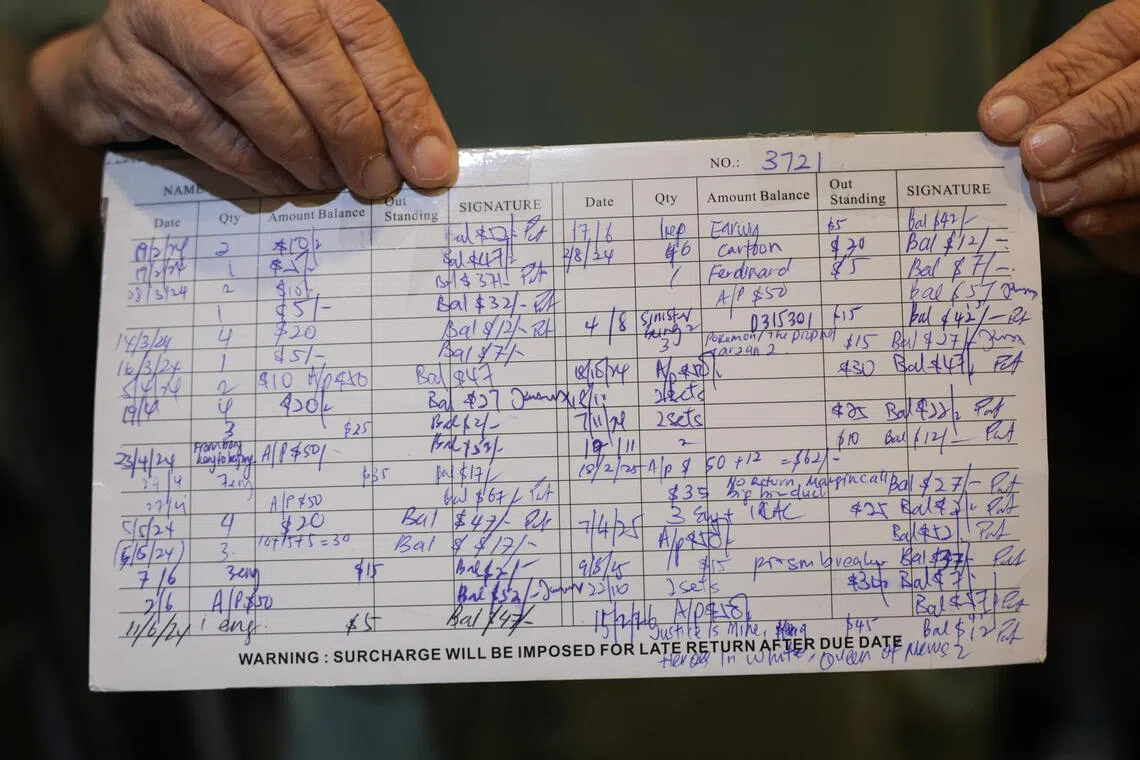 NO.: 3721
NAME
Date Qty Amount Balance Out Standing SIGNATURE
19/2/24 2 $10/- Bal $52/- Pat
1 $5/- Bal $47/-
08/3/24 2 $10/- Bal $37/- Pat
1 $5/- Bal $32/- Pat
14/3/24 4 $20 Bal $12/- Pat
16/3/24 1 $5/- Bal $7/-
5/4/24 2 $10 A/p $50 Bal $47
19/4 4 $20/- Bal $27
3 $25 Bal $2/-
23/4/24 A/P $50/- Bal $52/-
27/4 7eng $35 Bal $17/-
27/4 A/P $50 Bal $67/- Pat
5/5/24 4 $20 Bal $47/- Pat
3 10+15+5=30 Bal $17/-
7/6 3eng $15 Bal $2/-
2/6 A/P $50 Bal $52/-
11/6/24 1 eng $5 Bal $47/-
Date Qty Amount Balance Out Standing SIGNATURE
17/6 Earwig $5 Bal $42/-
2/8/24 Cartoon $20 Bal $12/-
1 Ferdinand $5 Bal $7/-
A/P $50 Bal $57/-
4/8 Sinister being 2 D315301 $15 Bal $42/- Pat
3 Pokemon, The Prophet Tarzan 2 $15 Bal $27/-
A/p $50/- $30 Bal $47/- Pat
2sets
7/11/24 2sets $25 Bal $22/- Pat
19/11 2 $10 Bal $12/- Pat
18/2/25 A/p $ 50+12 = $62/-
$35 No Return, Margin call Big bonduel Bal $27/- Pat
7/4/25 3 $25 Bal $2/- Pat
A/p $50/- Bal $52/- Pat
$15 prison break Bal $37/- Pat
22/10 2sets $30 Bal $7/-
A/p $50 Bal $57/- Pat
Justice is Mine, $45 Bal $12 Pat
Heroes In White, Queen of News 2
WARNING : SURCHARGE WILL BE IMPOSED FOR LATE RETURN AFTER DUE DATE